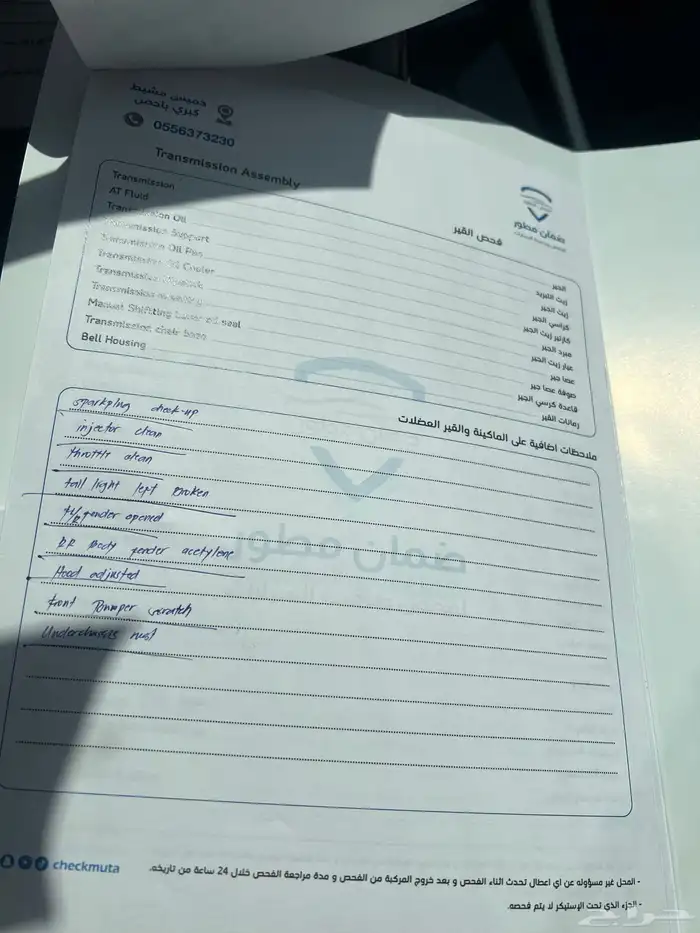 خميس مشيط
كبري ياحص
0556373230
Transmission Assembly
فحص القير
ضمان مطور
Transmission
الجير
AT Fluid
زيت الجير
Transmission Oil
كراسي الجير
Transmission Support
كارتير زيت الجير
Transmission Oil Pan
مبرد الجير
Transmission Oil Cooler
عيار زيت الجير
Transmission
عصا جير
Transmission
صوفة عصا جير
Manual Shifting Lever oil seal
قاعدة كرسي الجير
Transmission chair base
رمانات القير
Bell Housing
ملاحظات اضافية على الماكينة والقير العضلات
sparkplug check-up
injector clean
throttle clean
tail light left broken
fender opened
RR Body fender acetylene
Hood adjusted
front Bumper scratch
Underchassis rust
ضمان مطور
checkmuta
- المحل غير مسؤوله عن اي اعطال تحدث اثناء الفحص و بعد خروج المركبة من الفحص و مدة مراجعة الفحص خلال 24 ساعة من تاريخه.
- الجزء الذي تحت الإستيكر لا يتم فحصه.
حراج